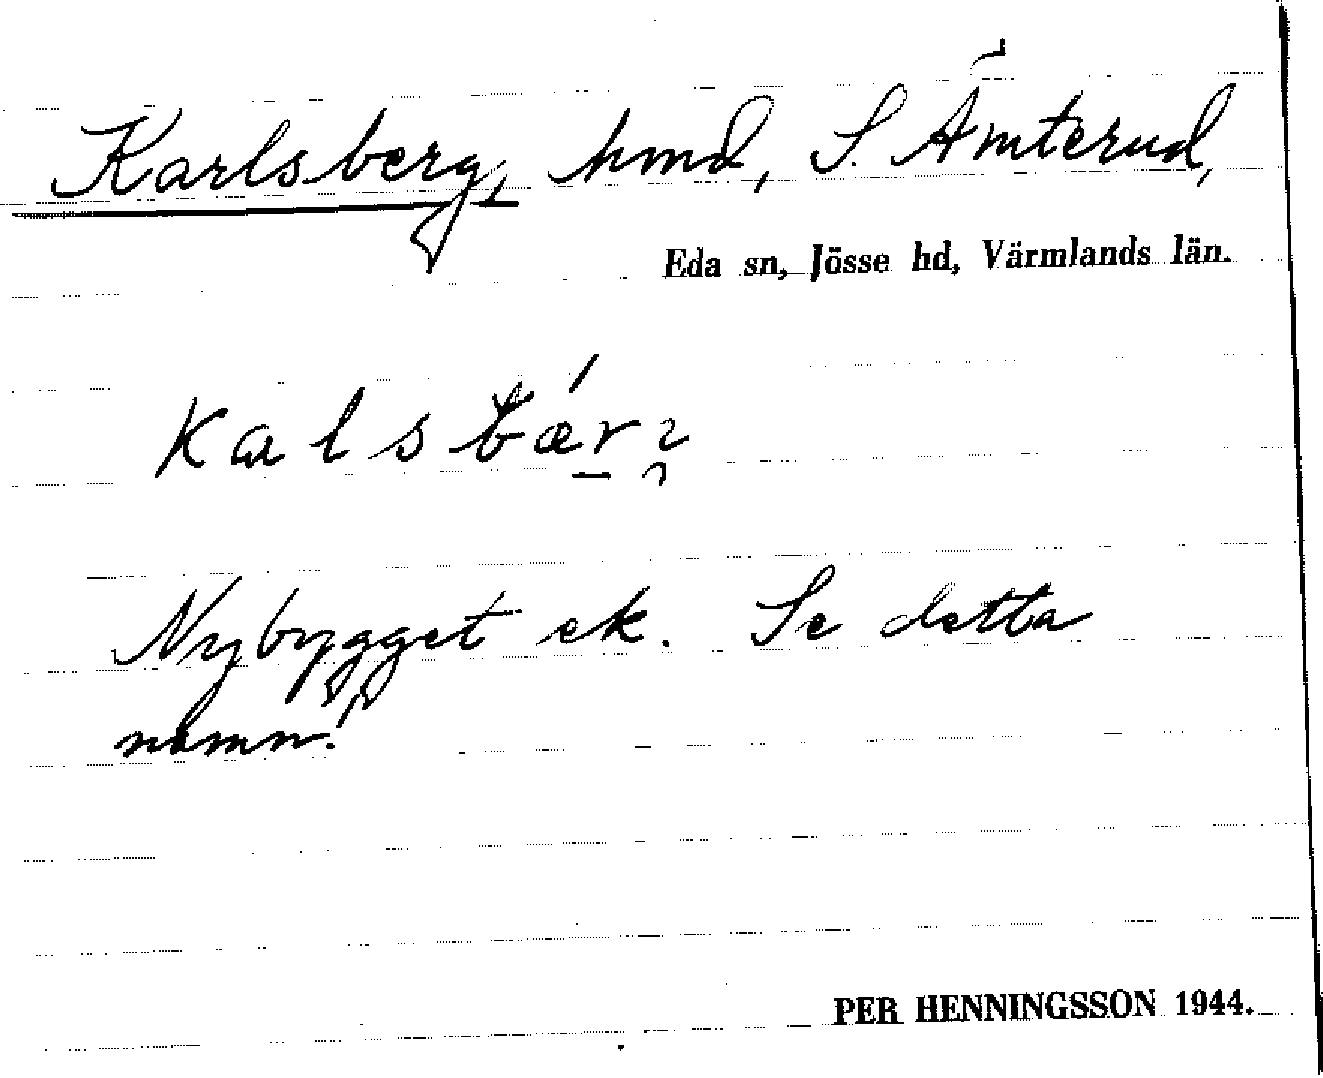 Karlsberg, hmd, S. Ämterud,
Eda sn, Jösse hd, Värmlands län.
Kalsbær
Nybygget ek. Se detta
namn!
PER HENNINGSSON 1944.